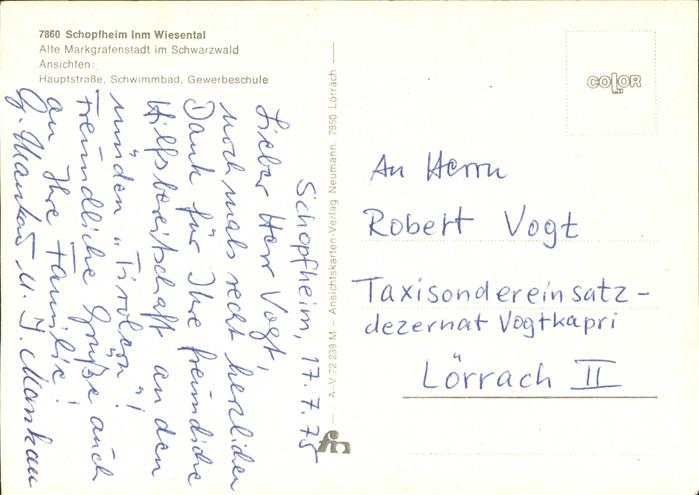 7860 Schopfheim Inm Wiesental
Alte Markgrafenstadt im Schwarzwald
Ansichten:
Hauptstraße, Schwimmbad, Gewerbeschule
Schopfheim, 17.7.75
Lieber Herr Vogt,
nochmals recht herzlichen
Dank für Ihre freundliche
Hilfsbereitschaft an den
müden „Tirolern"!
Freundliche Grüße auch
an Ihre Familie!
G. Mankau u. J. Mankau
A–V 72 239 M – Ansichtskarten-Verlag Neumann, 7850 Lörrach
fn
COLOR
An Herrn
Robert Vogt
Taxisondereinsatz-
dezernat Vogtkapri
Lörrach II